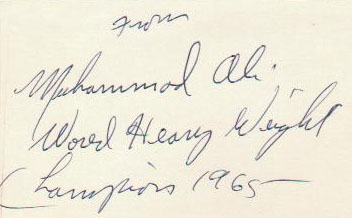 From
Muhammad Ali
World Heavy Weight
Champion 1965